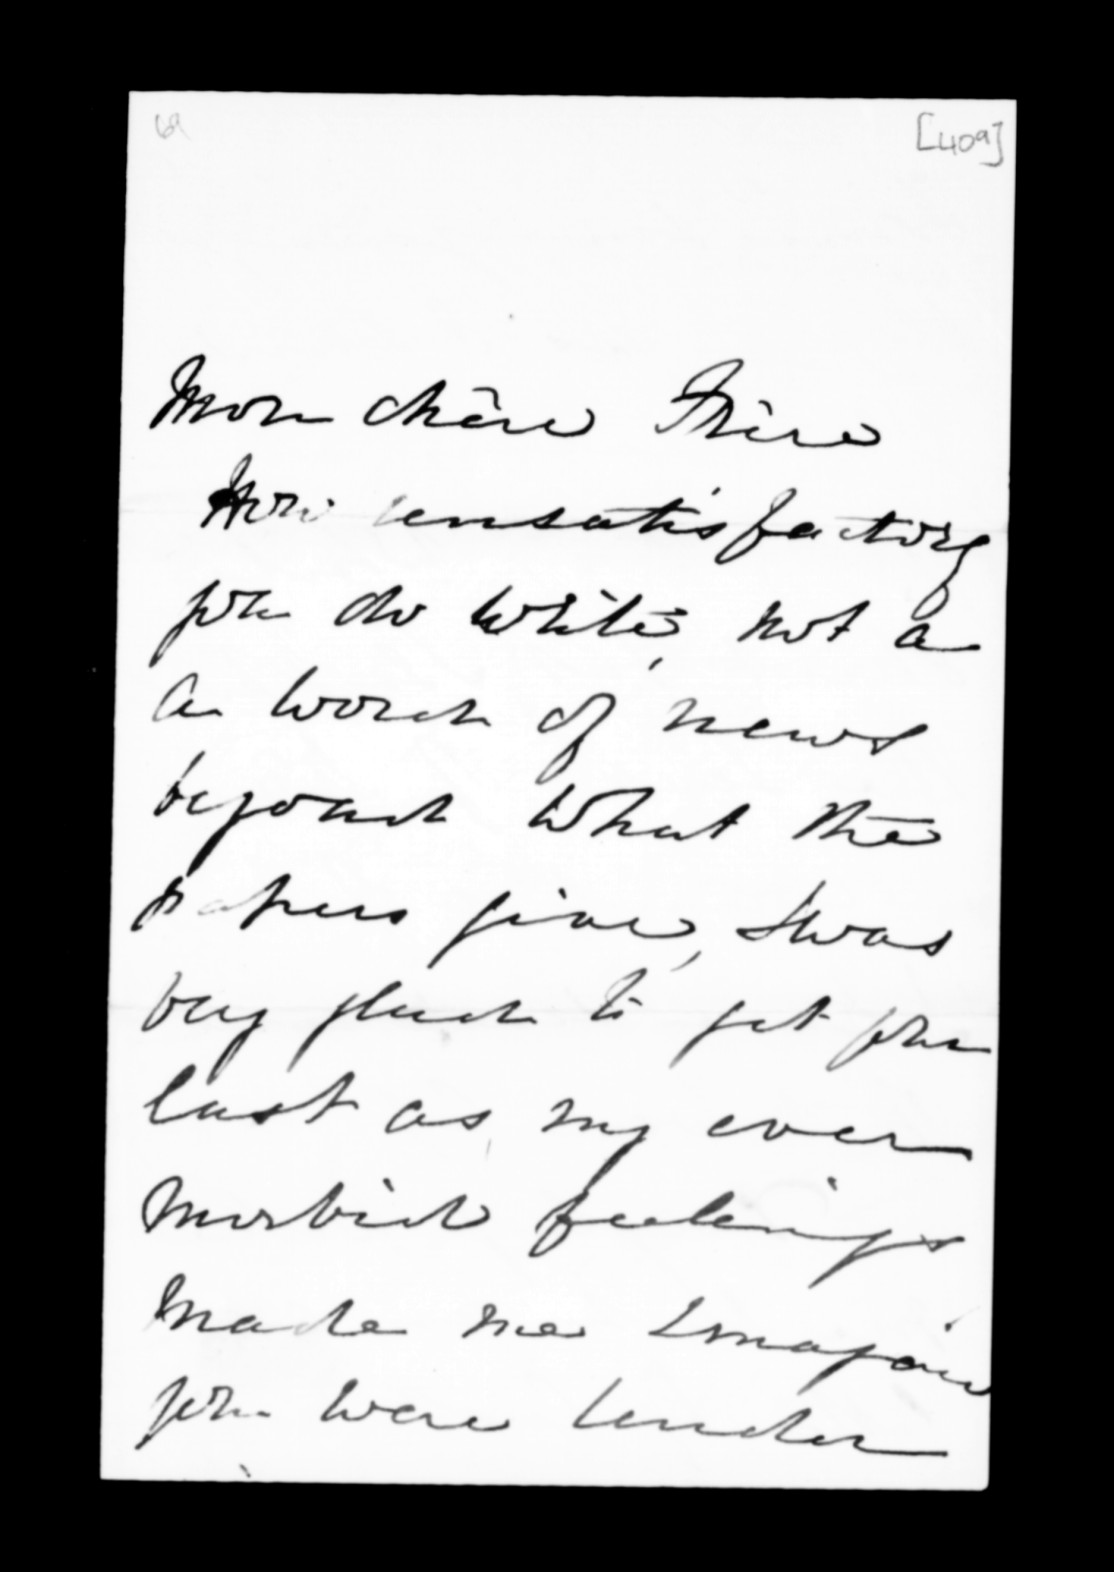 [409]
Mon chère Frère
How unsatisfactory
you do write, not a
a word of news
beyond what the
papers give, I was
very glad to get you
last as my ever
morbid feelings
made me Imagine
you were under